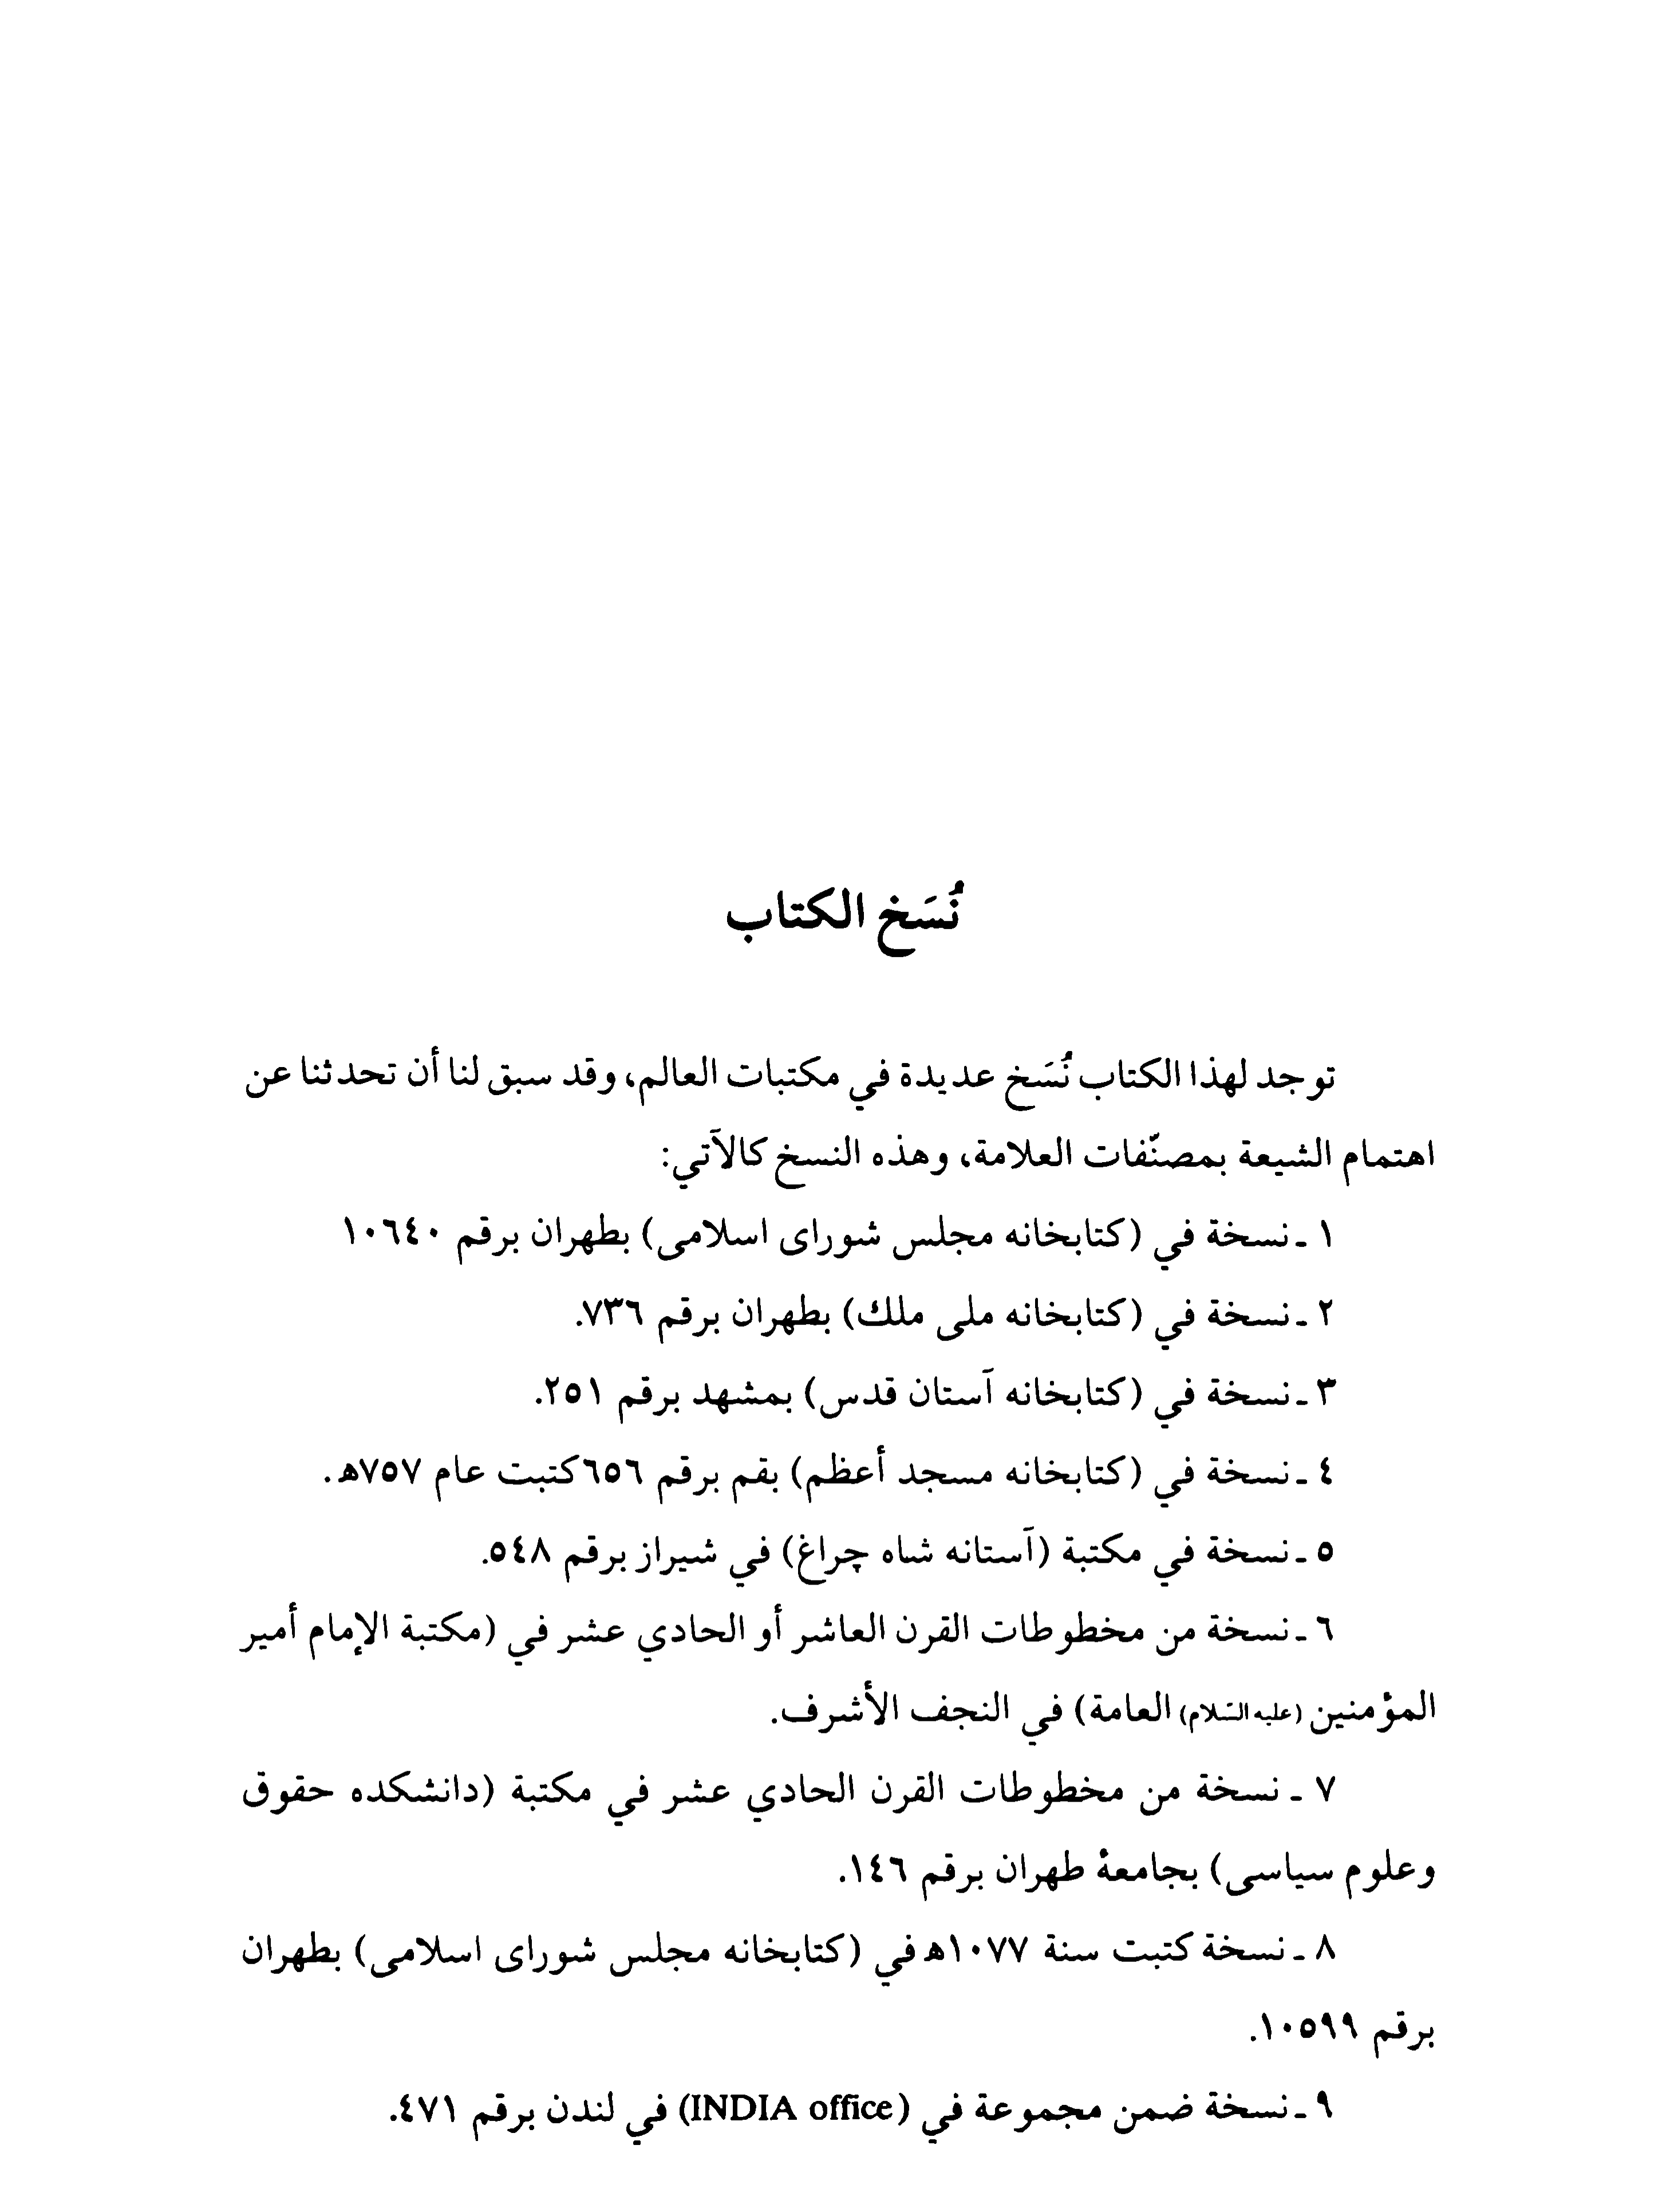 نُسَخ الكتاب
توجد لهذا الكتاب نُسَخ عديدة في مكتبات العالم، وقد سبق لنا أن تحدثنا عن
اهتمام الشيعة بمصنّفات العلامة، وهذه النسخ كالآتي:
١ ـ نسخة في (كتابخانه مجلس شوراى اسلامى) بطهران برقم ١٠٦٤٠
٢ ـ نسخة في (كتابخانه ملى ملك) بطهران برقم ٧٣٦.
٣ ـ نسخة في (كتابخانه آستان قدس) بمشهد برقم ٢٥١.
٤ ـ نسخة في (كتابخانه مسجد أعظم) بقم برقم ٦٥٦ كتبت عام ٧٥٧ه‍.
٥ ـ نسخة في مكتبة (آستانه شاه چراغ) في شيراز برقم ٥٤٨.
٦ ـ نسخة من مخطوطات القرن العاشر أو الحادي عشر في (مكتبة الإمام أمير
المؤمنين (عليه السّلام) العامة) في النجف الأشرف.
٧ ـ نسخة من مخطوطات القرن الحادي عشر في مكتبة (دانشكده حقوق
وعلوم سياسى) بجامعهٔ طهران برقم ١٤٦.
٨ ـ نسخة كتبت سنة ١٠٧٧ه‍ في (كتابخانه مجلس شوراى اسلامى) بطهران
برقم ١٠٥٩٩.
٩ ـ نسخة ضمن مجموعة في (INDIA office) في لندن برقم ٤٧١.